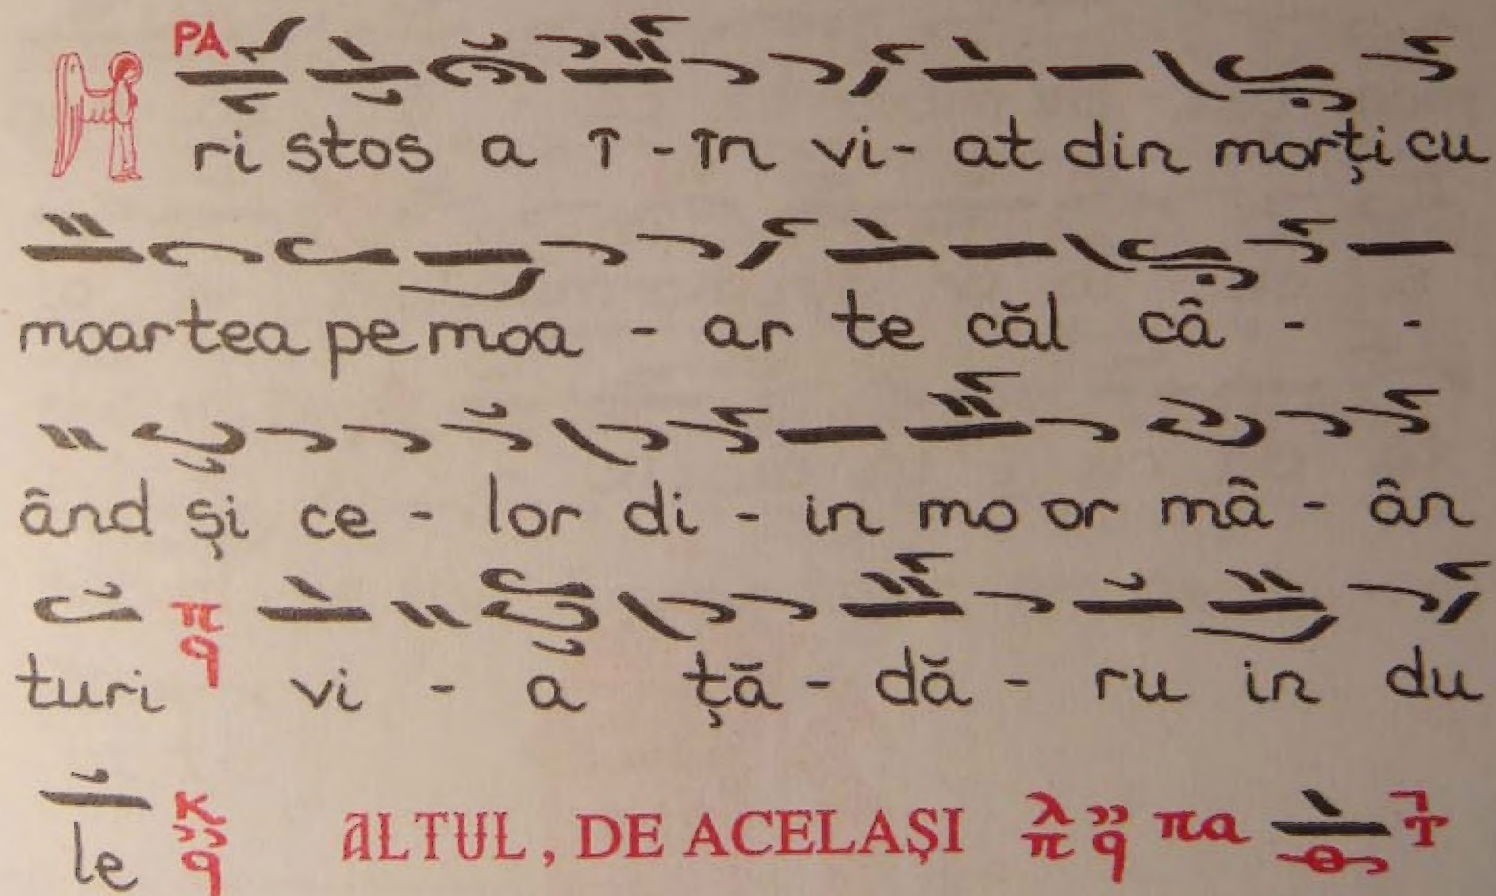 PA
Hri stos a î - în vi - at din morți cu
moartea pe moa - ar te căl câ - -
ând și ce - lor di - in mo or mâ - ân
turi π q vi - a ță - dă - ru in du
le κ q ALTUL, DE ACELAȘI λ π q πa